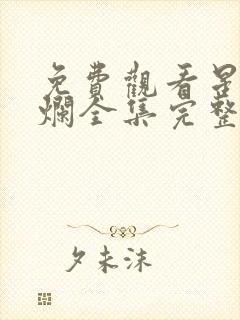 免費觀看星
爛全集完整
夕未沫